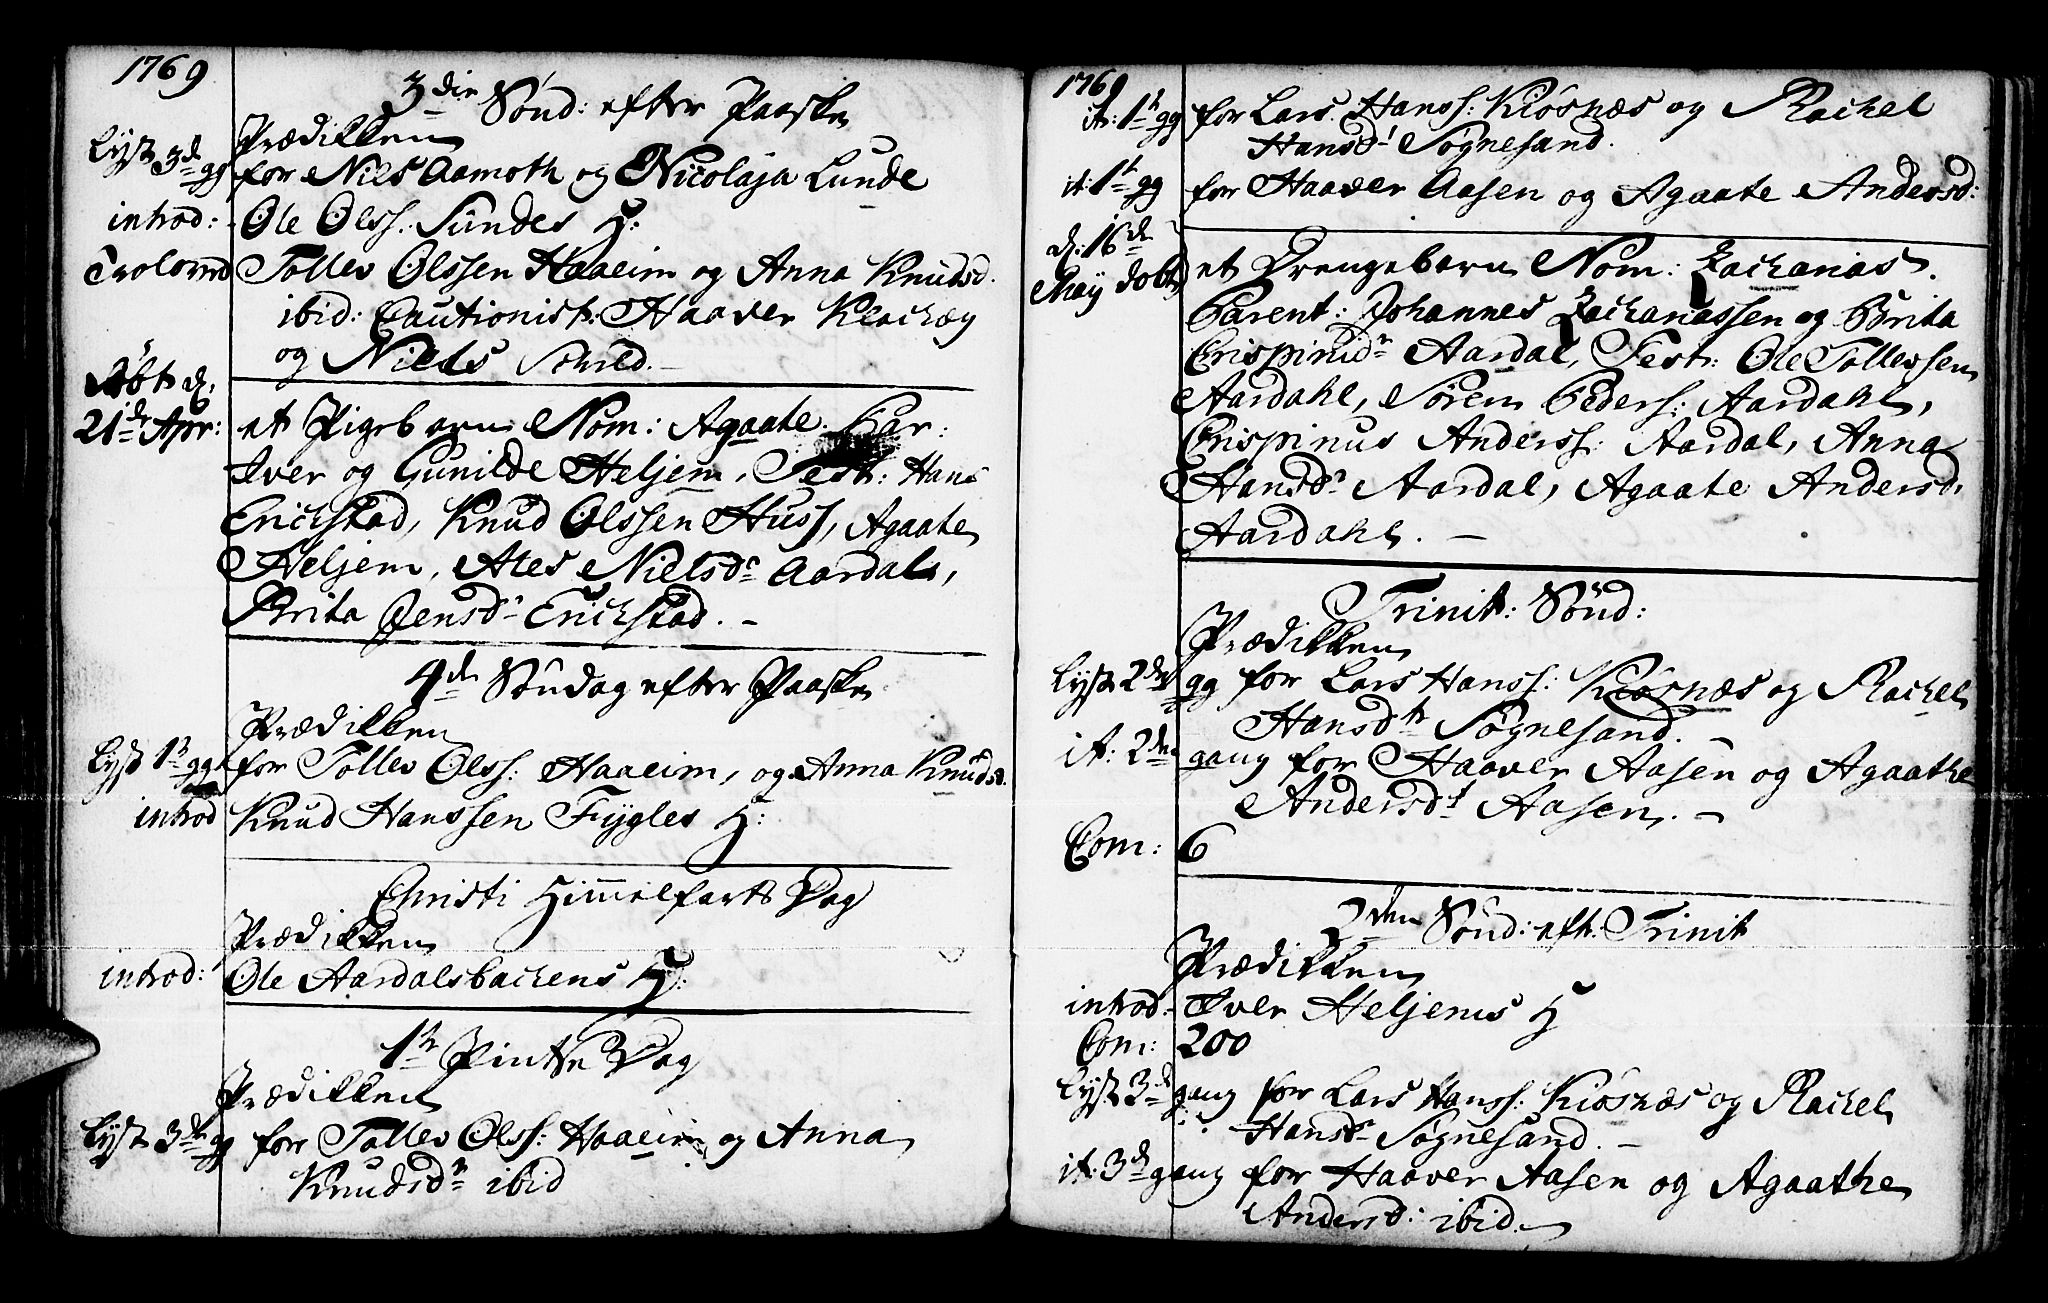 1769
3die Sönd: efter Paaske
Prædikken
Lyst 3de gg for Niels Aamoth og Nicolaja Lunde
introd: Ole Olss. Sundes H:
Troloved Tollev Olssen Haaeim og Anna Knudsd.
ibid: Cautionist: Haaver Klachæg
og Niels
Döbt d.
21de Apr: et Pigebarn Nom: Agaate. Par:
Iver og Gunilde Heljem, Test: Hans
Erichstad, Knud Olssen Huss, Agaate
Heljem, Ales Nielsdr Aardal,
Brita Jensdr Erichstad. –
4de Söndag efter Paaske
Prædikken
Lyst 1te gg for Tollev Olss: Haaeim, og Anna Knudsd.
introd Knud Hanssen Fygles H:
Christi Himmelfarts Dag
Prædikken
introd: Ole Aardalsbachens H:
1te Pintse Dag
Prædikken
Lyst 3de gg for Tollev Olss: Haaeim og Anna
Knudsdr ibid
1769
it: 1te gg for Lars Hanss: Kiösnæs og Rachel
Hansdr Sögnesand.
it: 1te gg for Haaver Aasen og Agaate Andersd:
d: 16de
May döbt et Drengebarn Nom: Zacharias.
Parent: Johannes Zachariassen og Brita
Crispinidr Aardal, Test: Ole Tollevsen
Aardahl, Sören Peders: Aardahl,
Crispinus Anderss: Aardal, Anna
Hansdr Aardal, Agaate Andersd.
Aardahl. –
Trinit: Sönd:
Prædikken
Lyst 2den gg for Lars Hanss: Kiösnæs og Rachel
Hansdtr Sögnesand. –
it: 2den gang for Haaver Aasen og Agaathe
Andersdt Aasen. –
Com: 6
2den Sönd: eft: Trinit
Prædikken
introd: Iver Heljems H
Com: 200
Lyst 3de gang for Lars Hanss: Kiösnæs og Rachel
Hansdr Sögnesand. –
it: 3de gang for Haaver Aasen og Agaathe
Andersd: ibid. –